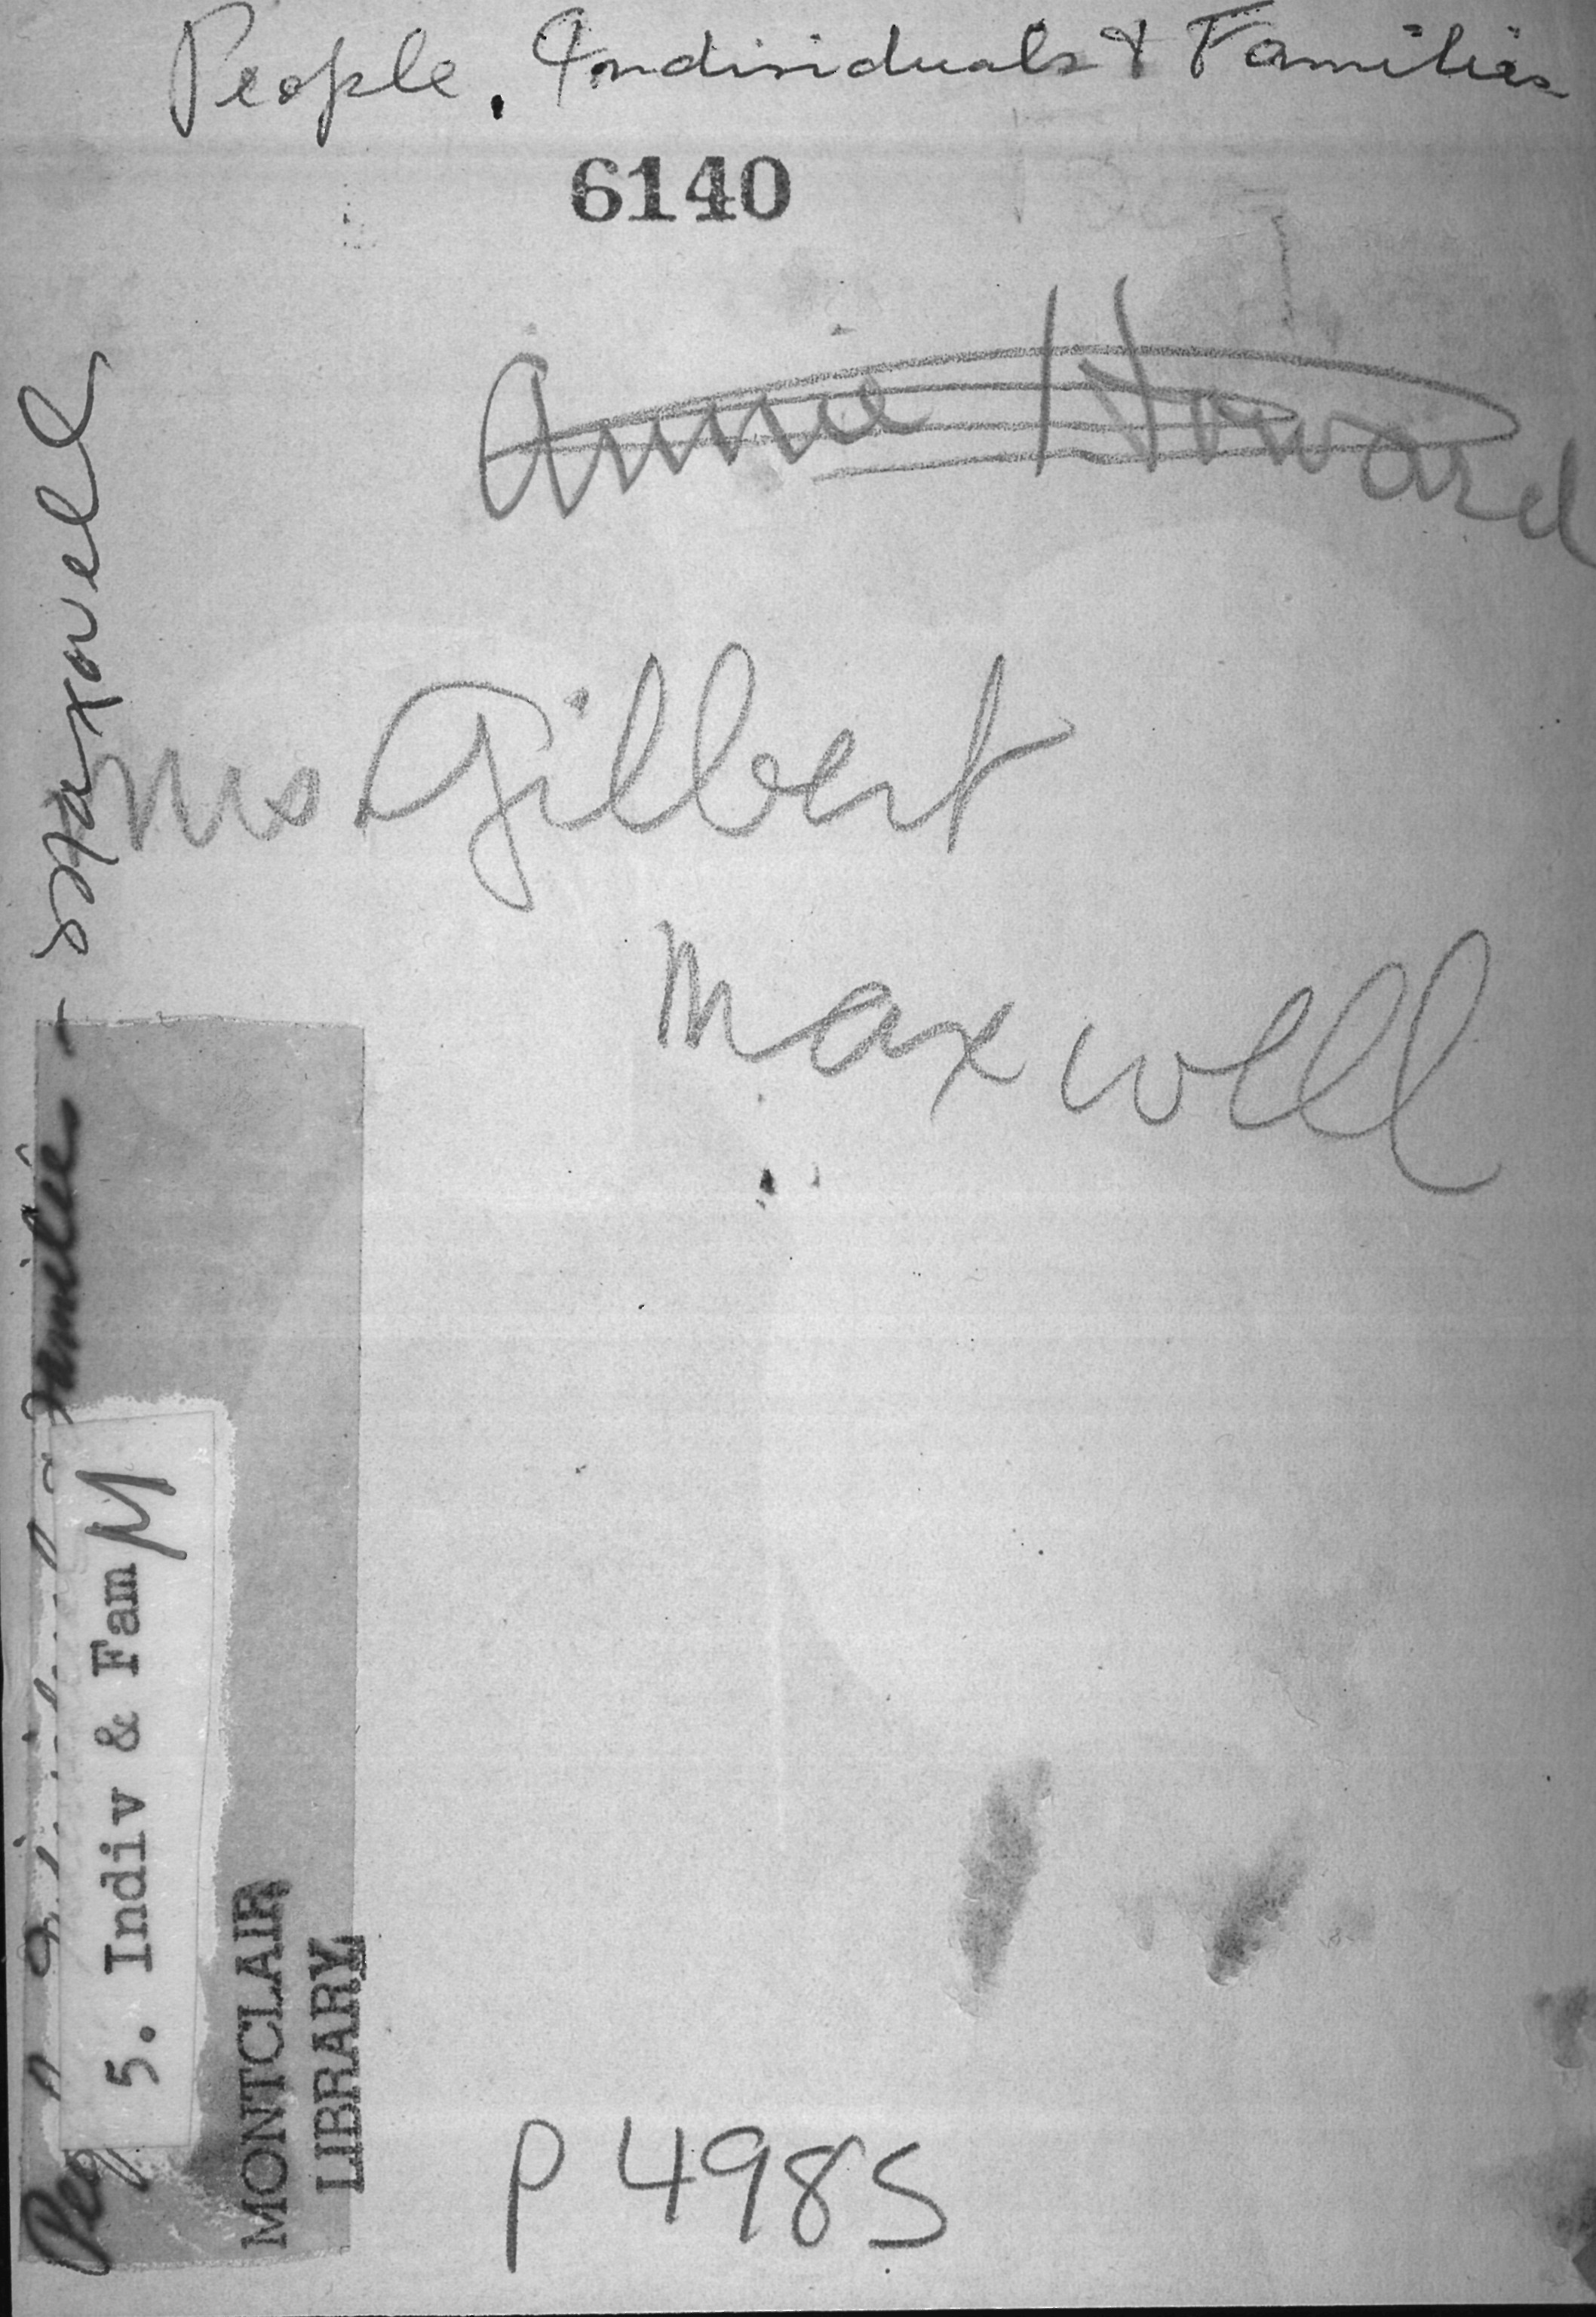 People. Individuals & Families
6140
Annie Howard
Mrs. Gilbert
Maxwell
P 4985
Families - Maxwell
5. Indiv & Fam M
MONTCLAIR
LIBRARY